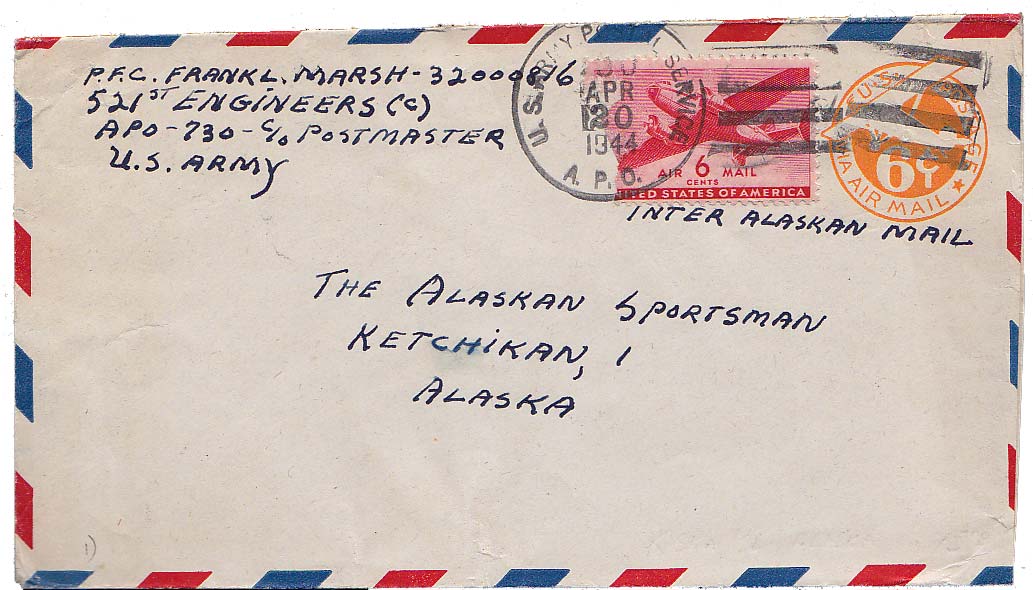 P.F.C. FRANK L. MARSH - 32000876
521ST ENGINEERS (C)
APO - 730 - C/O POSTMASTER
U.S. ARMY
U.S. ARMY POSTAL SERVICE
APR
20
1944
A. P. O.
AIR 6 MAIL
CENTS
UNITED STATES OF AMERICA
6¢
VIA AIR MAIL
INTER ALASKAN MAIL
THE ALASKAN SPORTSMAN
KETCHIKAN, 1
ALASKA
1)